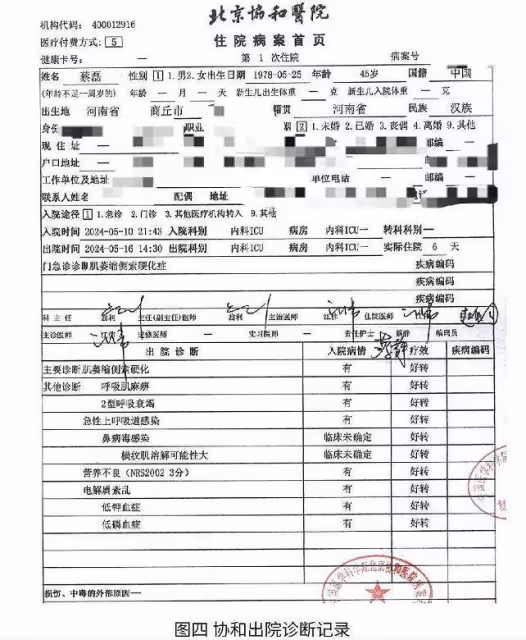 北京协和医院
机构代码: 400012916
医疗付费方式: 5
住院病案首页
健康卡号: — 第 1 次住院 病案号
姓名 蔡磊 性别 1 1.男2.女 出生日期 1978-05-25 年龄 45岁 国籍 中国
(年龄不足一周岁的) 年龄 — 月 — 天 新生儿出生体重 — 克 新生儿入院体重 — 克
出生地 河南省 商丘市 籍贯 河南省 民族 汉族
职业 2 1.未婚 2.已婚 3.丧偶 4.离婚 9.其他
现住址 — 邮编
户口地址 — 邮编 —
工作单位及地址 单位电话 — 邮编
联系人姓名 配偶 地址
入院途径 1 1.急诊 2.门诊 3.其他医疗机构转入 9.其他
入院时间 2024-05-10 21:43 入院科别 内科ICU 病房 内科ICU一 转科科别—
出院时间 2024-05-16 14:30 出院科别 内科ICU 病房 内科ICU一 实际住院 6 天
门急诊诊断肌萎缩侧索硬化症 疾病编码
疾病编码
疾病编码
科主任 主任(副主任)医师 主治医师 住院医师
主诊医师 进修医师 — 实习医师 — 责任护士 编码员
出院诊断 入院病情 疗效 疾病编码
主要诊断肌萎缩侧索硬化 有 好转
其他诊断 呼吸肌麻痹 有 好转
2型呼吸衰竭 有 好转
急性上呼吸道感染 有 好转
鼻病毒感染 临床未确定 好转
横纹肌溶解可能性大 临床未确定 好转
营养不良 (NRS2002 3分) 有 好转
电解质紊乱 有 好转
低钾血症 有 好转
低磷血症 有 好转
损伤、中毒的外部原因—
图四 协和出院诊断记录